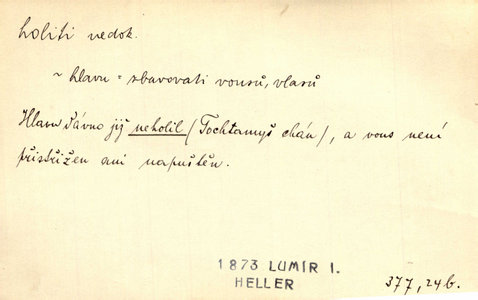 holiti nedok.
~ hlavu = zbavovati vousů, vlasů
Hlavu dávno již neholil (Tochtamyš chán), a vous není
přistřižen ani napuštěn.
1873 LUMÍR I.
HELLER
377, 24b.